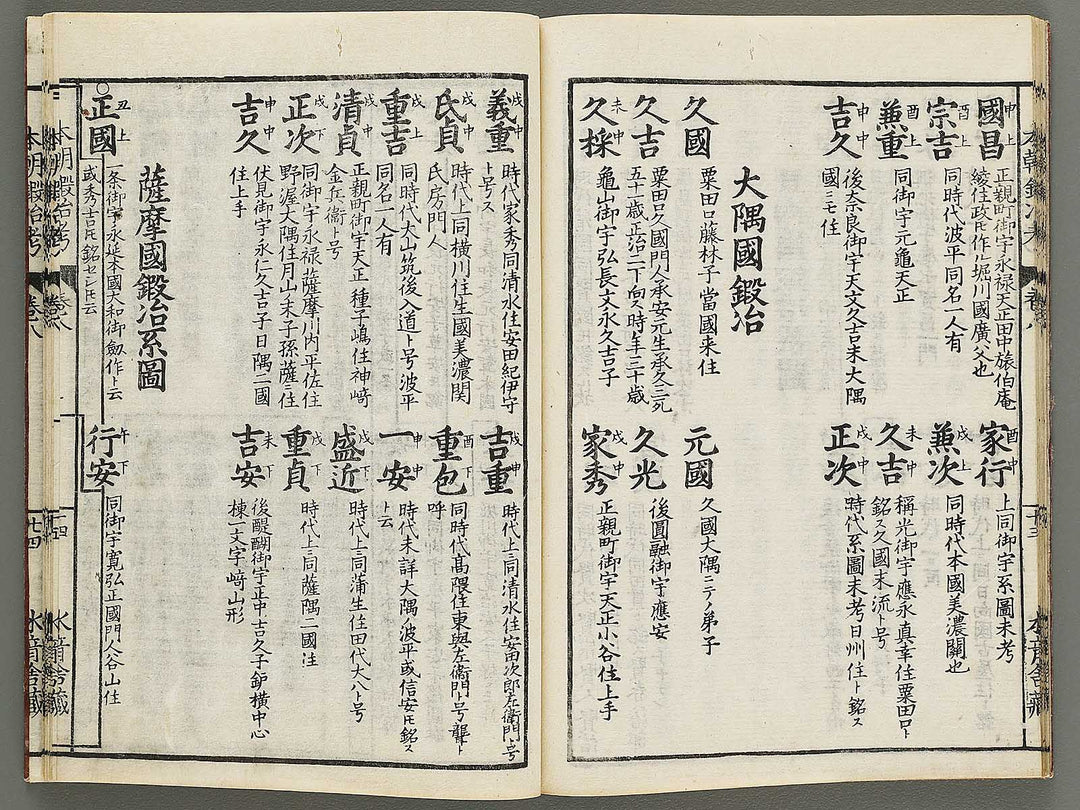 國昌 申上 正親町御宇永禄天正田中旅伯庵
綾住政氏作ル堀川國廣ノ父也
宗吉 酉上 同時代波平同名一人有
兼重 酉上 同御宇元亀天正
吉久 申中 後奈良御宇天文久吉末大隅
國ニモ住
家行 酉中 上同御宇系圖未考
兼次 戌上 同時代本國美濃關也
久吉 未中 稱光御宇應永真幸住粟田口ト
銘ス久國末流ト号
正次 戌中 時代系圖未考日州住ト銘ス
大隅國鍛冶
久國 粟田口藤林子當國来住
久吉 粟田口久國門人承安元生承久三死
五十一歳正治二下向ス時年三十歳
久採 未中 亀山御宇弘長文永久吉子
元國 久國大隅ニテノ弟子
久光 後圓融御宇應安
家秀 戌中 正親町御宇天正小谷住上手
義重 戌中 時代家秀同清水住安田紀伊守
ト号ス
氏貞 戌中 時代上同横川住生國美濃関
氏房門人
重吉 戌上 同時代大山筑後入道ト号波平
同名二人有
清貞 戌中 正親町御宇天正種子嶋住神﨑
金兵衛ト号
正次 戌下 同御宇永禄薩摩川内平佐住
野渥大隅住月山末子孫薩ニ住
吉久 申中 伏見御宇永仁久吉子日隅二國
住上手
吉重 戌中 時代上同清水住安田次郎左衛門ト号
重包 酉中 同時代高隈住東與左衛門ト号聾ト
呼
一安 申中 時代未詳大隅ノ波平或信安氏銘ス
ト云
盛近 戌下 時代上同蒲生住田代大八ト号
重貞 戌下 時代上同薩隅二國住
吉安 未下 後醍醐御宇正中吉久子鈩横中心
棟一文字﨑山形
薩摩國鍛冶系圖
正國 丑上 一条御宇永延本國大和御劔作ト云
或秀吉氏銘セシ氏云
行安 午下 同御宇寛弘正國門人谷山住